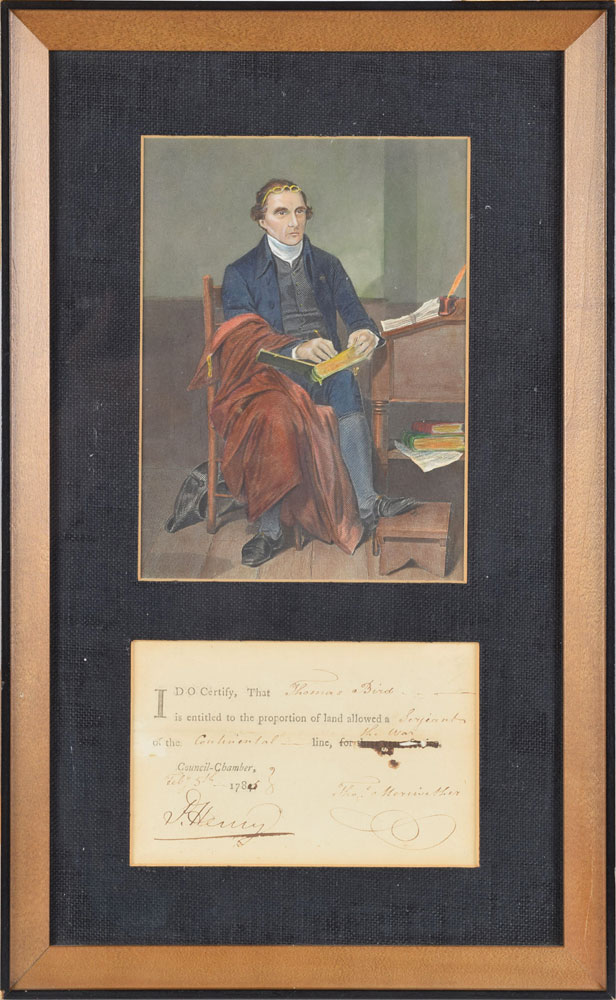 I DO Certify, That Thomas Bird
is entitled to the proportion of land allowed a Serjeant
of the Continental line, for the War
Council-Chamber,
Feb. 5th 178
P. Henry
Tho.s Meriwether